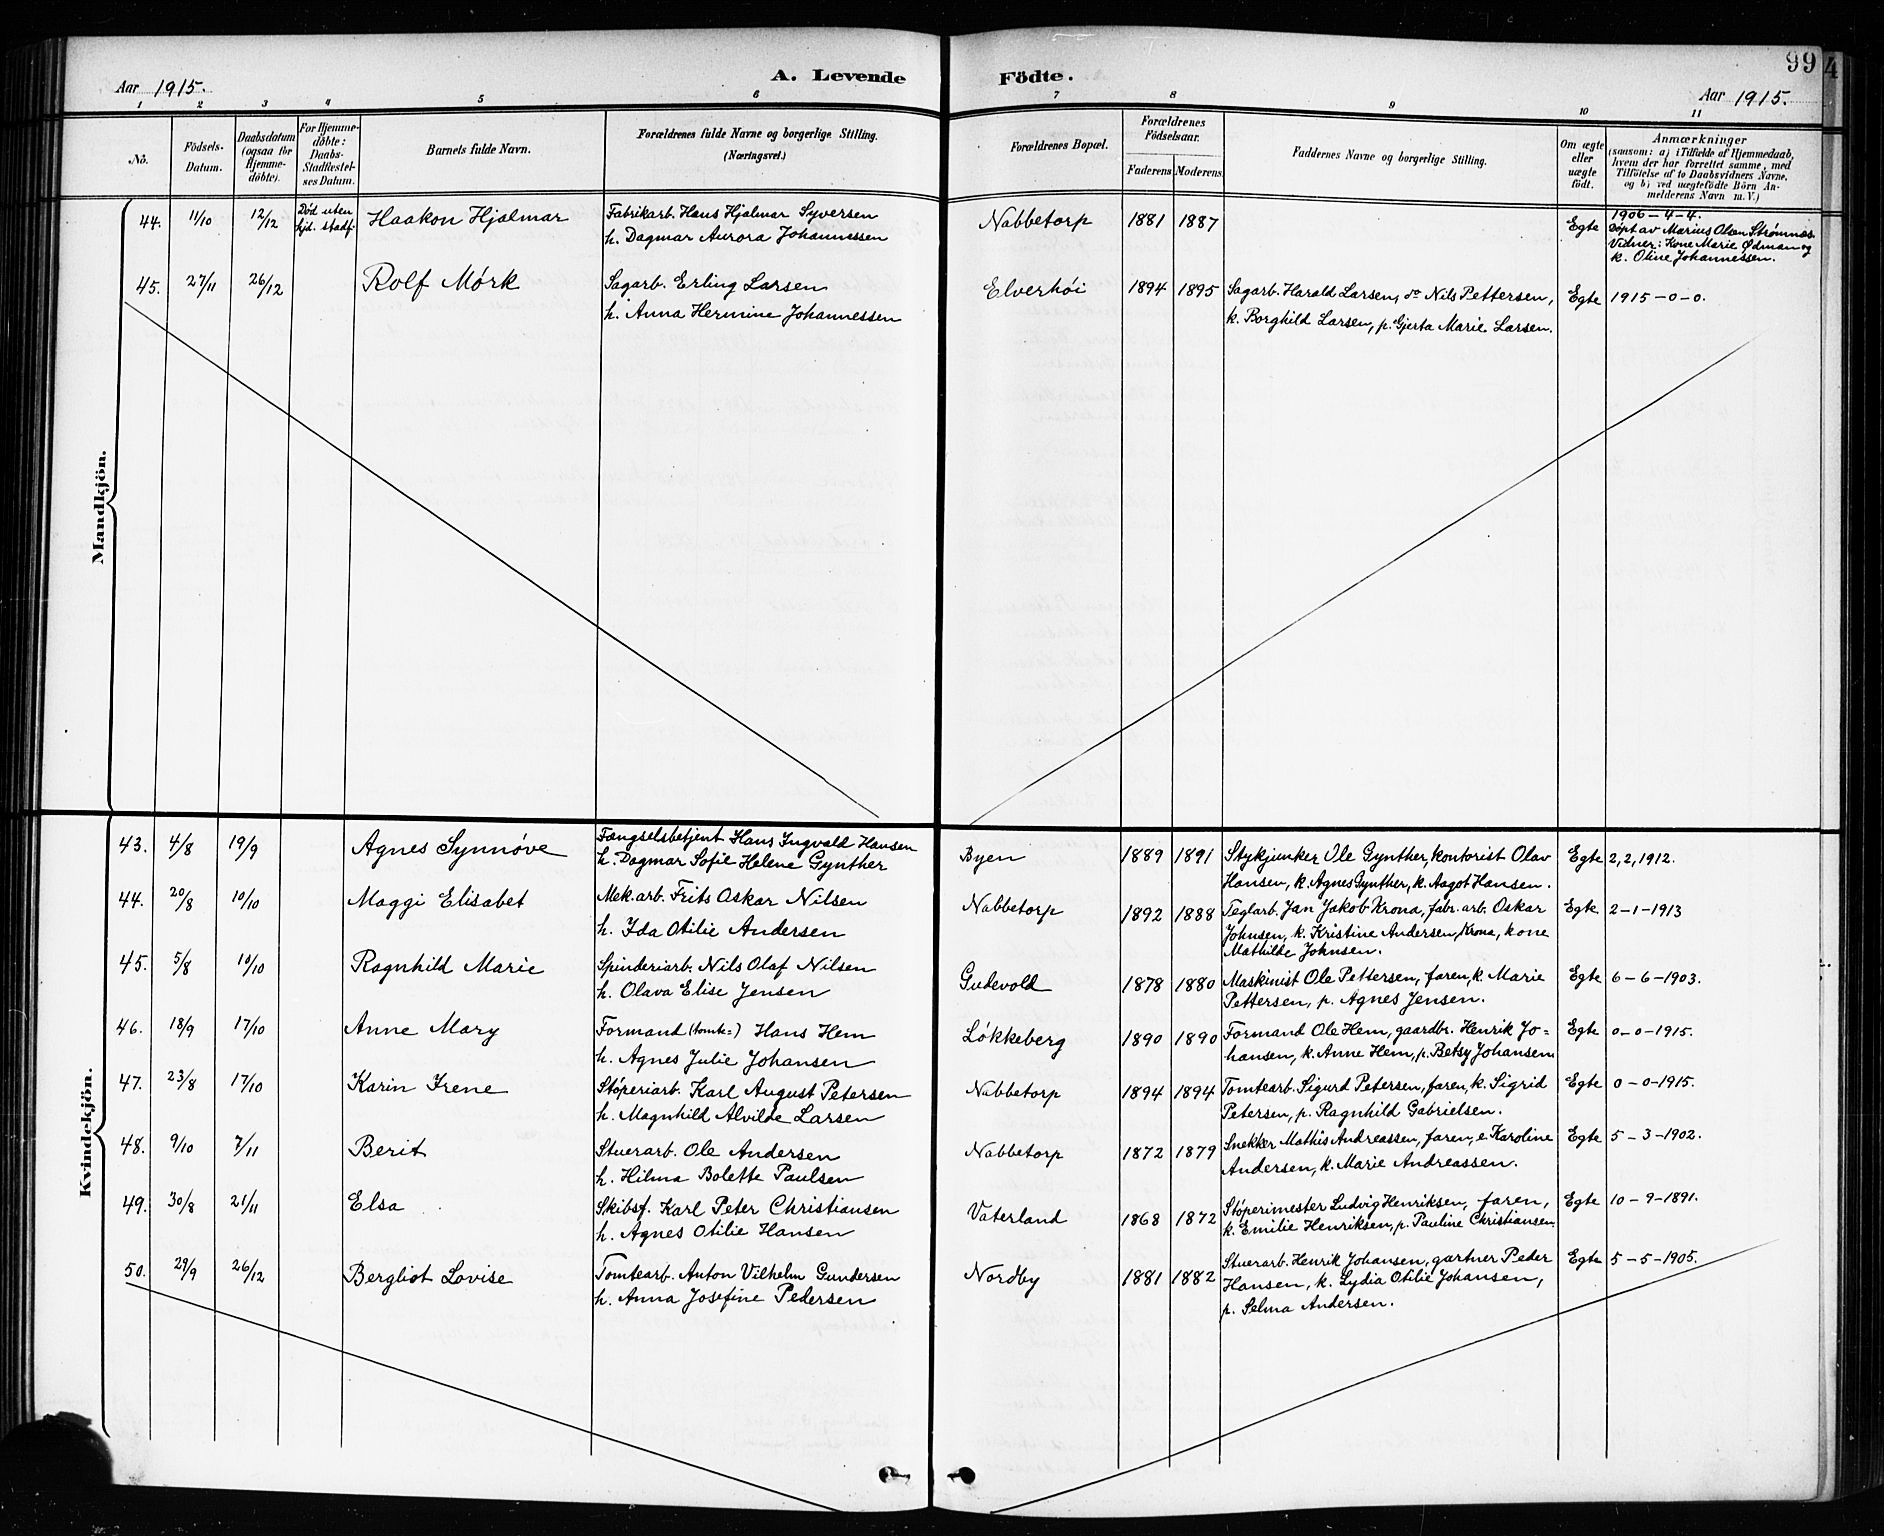 99
4
Aar 1915.
A. Levende Födte.
Aar 1915.
1 2 3 4 5 6 7 8 9 10 11
No.
Födsels-Datum.
Daabsdatum (ogsaa for Hjemme-döbte).
For Hjemme-döbte: Daabs-Stadfæstel-ses Datum.
Barnets fulde Navn.
Forældrenes fulde Navne og borgerlige Stilling. (Næringsvei.)
Forældrenes Bopæl.
Forældrenes Födselsaar.
Faderens Moderens
Faddernes Navne og borgerlige Stilling.
Om ægte eller uægte födt.
Anmærkninger
(saasom: a) i Tilfælde af Hjemmedaab,
hvem der har forrettet samme, med
Tilföielse af to Daabsvidners Navne,
og b) ved uægtefödte Börn An-
melderens Navn m. V.)
Mandkjön.
44. 11/10 12/12 Død uten hjd. stadf. Haakon Hjalmar Fabrikarb. Hans Hjalmar Syversen Nabbetorp 1881 1887 Egte 1906-4-4.
h. Dagmar Aurora Johannessen Døpt av Marius Olsen Strømnæs.
Vidner: Kone Marie Ødman og
k. Oline Johannessen.
45. 27/11 26/12 Rolf Mørk Sagarb. Erling Larsen Elverhöi 1894 1895 Sagarb. Harald Larsen, do Nils Pettersen, Egte 1915-0-0.
h. Anna Hermine Johannessen k. Borghild Larsen, p. Gjerta Marie Larsen.
Kvindekjön.
43. 4/8 19/9 Agnes Synnøve Fængselsbetjent Hans Ingvald Hansen Byen 1889 1891 Stykjunker Ole Gynther, kontorist Olav Egte 2, 2, 1912.
h. Dagmar Sofie Helene Gynther Hansen, k. Agnes Gynther, k. Aagot Hansen.
44. 20/8 10/10 Maggi Elisabet Mek. arb. Frits Oskar Nilsen Nabbetorp 1892 1888 Teglarb. Jan Jakob Krona, fabr. arb. Oskar Egte 2-1-1913
h. Ida Otilie Andersen Johnsen, k. Kristine Andersen, Krona, kone
Mathilde Johnsen.
45. 5/8 10/10 Ragnhild Marie Spinderiarb. Nils Olaf Nilsen Gudevold 1878 1880 Maskinist Ole Pettersen, faren, k. Marie Egte 6-6-1903.
h. Olava Elise Jensen Pettersen, p. Agnes Jensen.
46. 18/9 17/10 Anne Mary Formand (tomte=) Hans Hem Lökkeberg 1890 1890 Formand Ole Hem, gaardbr. Henrik Jo= Egte 0-0-1915.
h. Agnes Julie Johansen hansen, k. Anne Hem, p. Betsy Johansen
47. 23/8 17/10 Karin Irene Støperiarb. Karl August Petersen Nabbetorp 1894 1894 Tomtearb. Sigurd Petersen, faren, k. Sigrid Egte 0-0-1915.
h. Magnhild Alvilde Larsen Petersen, p. Ragnhild Gabrielsen.
48. 9/10 7/11 Berit Stuerarb. Ole Andersen Nabbetorp 1872 1879 Snekker Mathis Andreassen, faren, e Karoline Egte 5-3-1902.
h. Hilma Bolette Paulsen Andersen, k. Marie Andreassen.
49. 30/8 21/11 Elsa Skibsf. Karl Peter Christiansen Vaterland 1868 1872 Støperimester Ludvig Henriksen, faren, Egte 10-9-1891.
h. Agnes Otilie Hansen k. Emilie Henriksen, p. Pauline Christiansen.
50. 29/9 26/12 Bergliot Lovise Tomtearb. Anton Vilhelm Gundersen Nordby 1881 1882 Stuerarb. Henrik Johansen, gartner Peder Egte 5-5-1905.
h. Anna Josefine Pedersen Hansen, k. Lydia Otilie Johansen,
p. Selma Andersen.